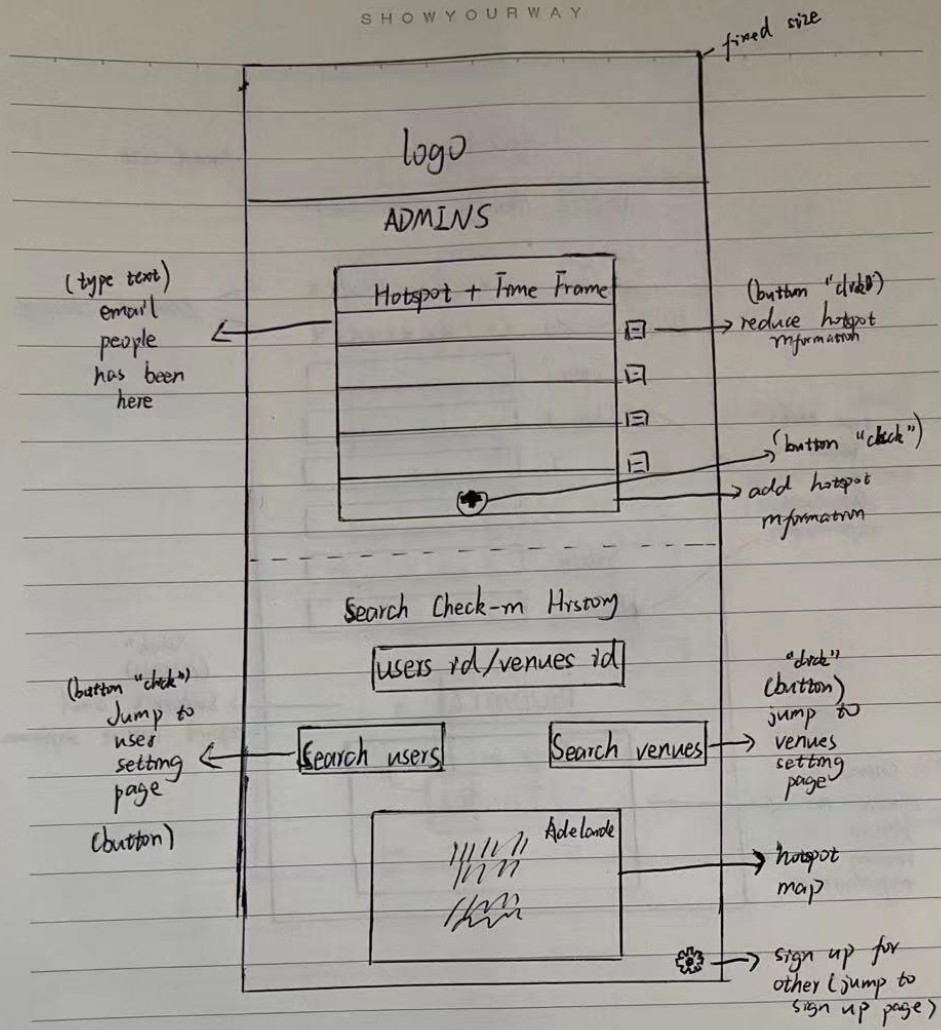 SHOWYOURWAY
fixed size
logo
ADMINS
(type text)
email
people
has been
here
Hotspot + Time Frame
(button "click")
reduce hotspot
information
(button "click")
add hotspot
information
Search Check-in History
users id/venues id
(button "click")
Jump to
user
setting
page
(button)
Search users
Search venues
"click"
(button)
jump to
venues
setting
page
Adelaide
hotspot
map
sign up for
other (jump to
sign up page)